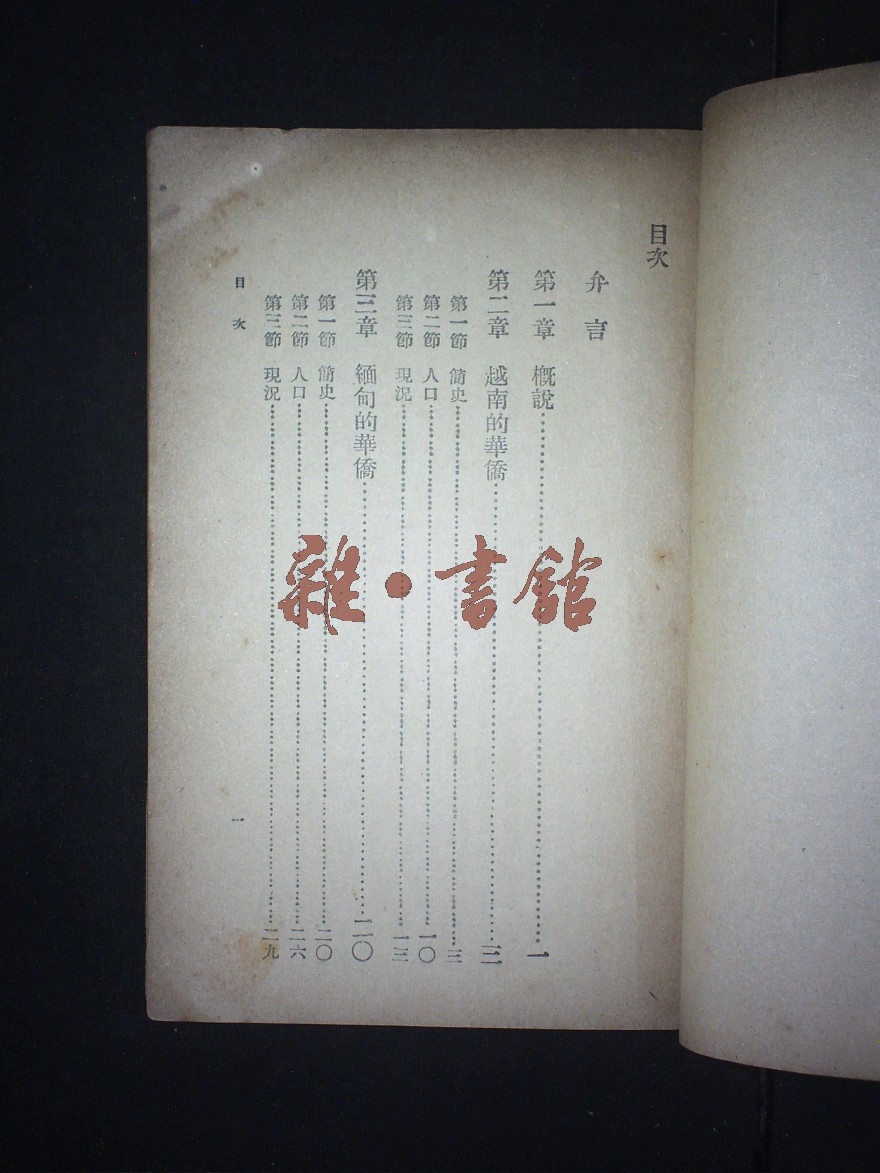 目次
弁言
第一章 概說……一
第二章 越南的華僑……三
第一節 簡史……三
第二節 人口……一〇
第三節 現況……一三
第三章 緬甸的華僑……二〇
第一節 簡史……二〇
第二節 人口……二六
第三節 現況……二九
目次 一
雜·書館